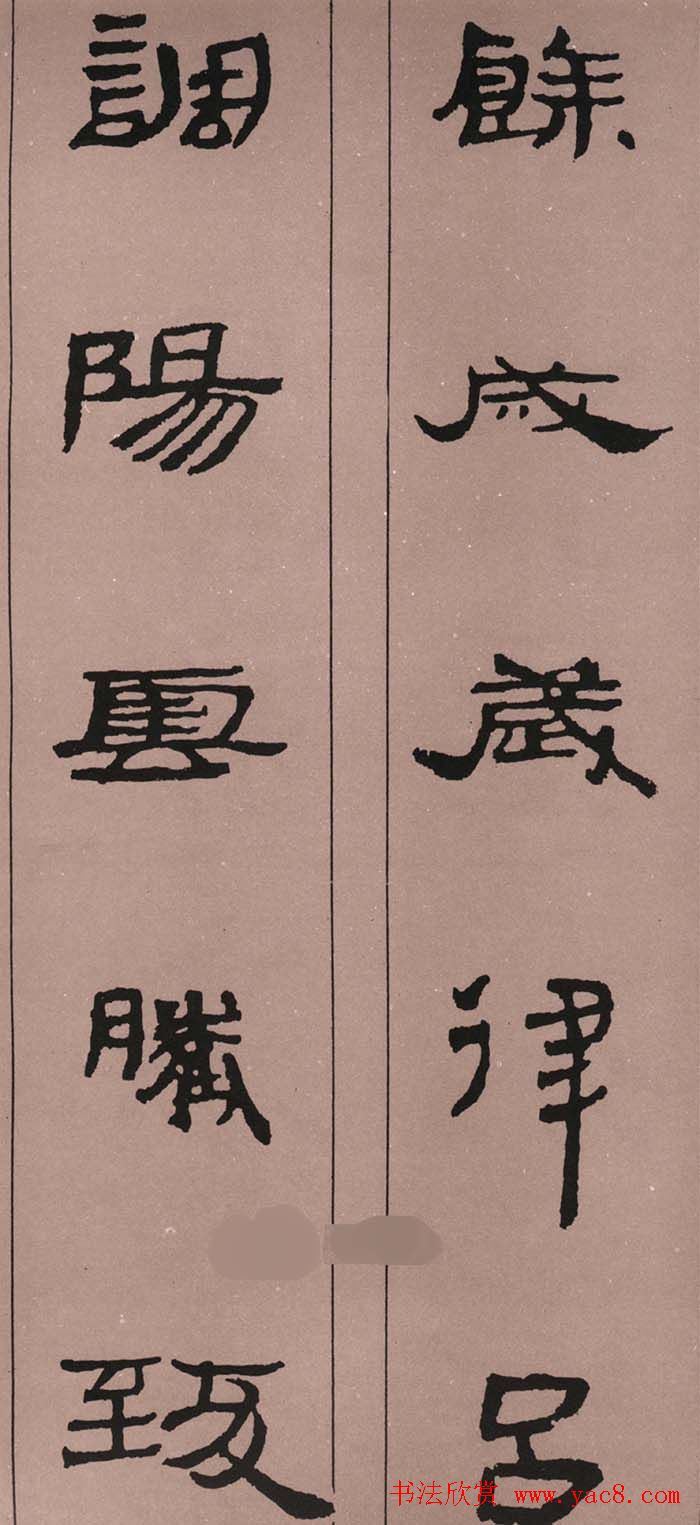 餘成歲律呂
調陽雲騰致
书法欣赏 www.yac8.com